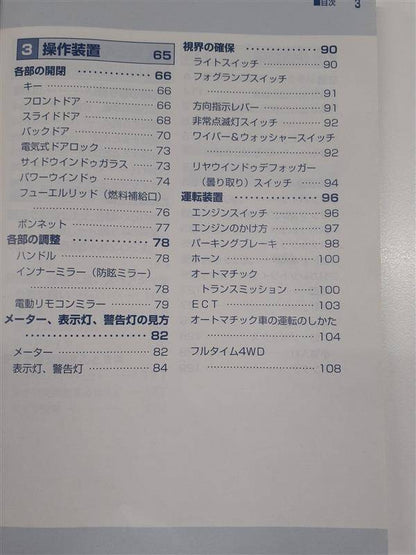 ■目次 3
3 操作装置 65
各部の開閉 66
キー 66
フロントドア 66
スライドドア 68
バックドア 70
電気式ドアロック 73
サイドウインドゥガラス 73
パワーウインドゥ 74
フューエルリッド（燃料補給口）
76
ボンネット 77
各部の調整 78
ハンドル 78
インナーミラー（防眩ミラー）
78
電動リモコンミラー 79
メーター、表示灯、警告灯の見方
82
メーター 82
表示灯、警告灯 84
視界の確保 90
ライトスイッチ 90
フォグランプスイッチ
91
方向指示レバー 91
非常点滅灯スイッチ 92
ワイパー＆ウォッシャースイッチ
92
リヤウインドゥデフォッガー
（曇り取り）スイッチ 94
運転装置 96
エンジンスイッチ 96
エンジンのかけ方 97
パーキングブレーキ 98
ホーン 100
オートマチック
トランスミッション 100
ECT 103
オートマチック車の運転のしかた
104
フルタイム4WD
108